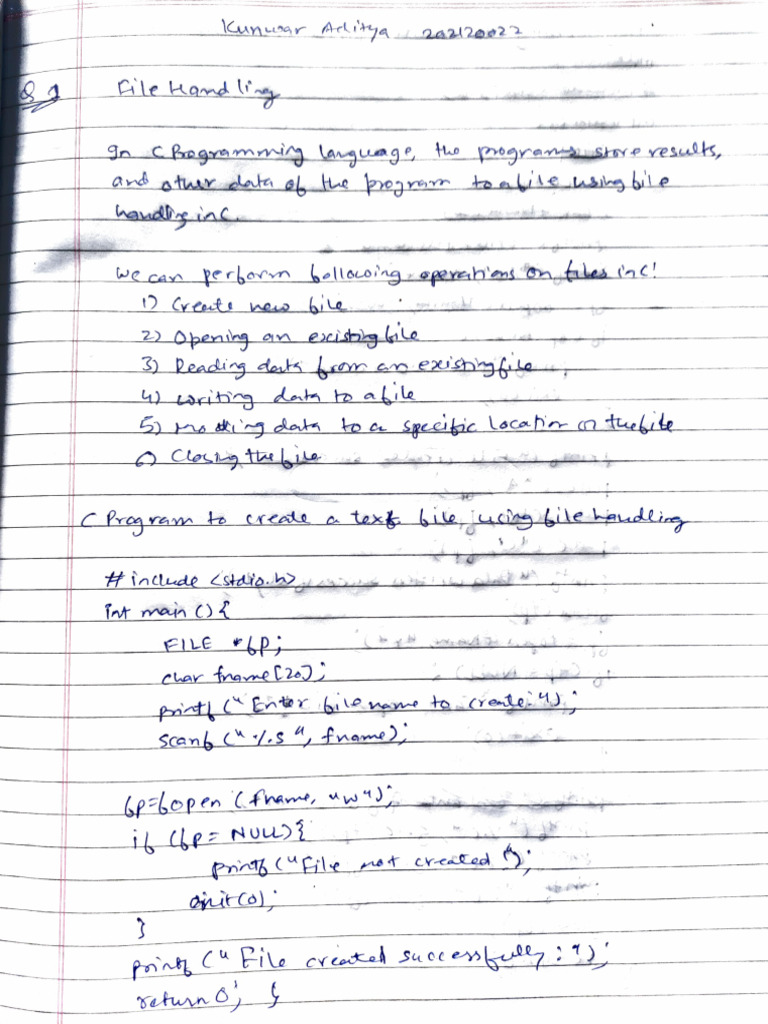 Kunwar Aditya 202120022
Q1 File Handling
In C Programming language, the programs store results,
and other data of the program to a file using file
handling in C.
We can perform following operations on files in C!
1) Create new file
2) Opening an existing file
3) Reading data from an existing file
4) Writing data to a file
5) Moving data to a specific location on the file
6) Closing the file
C Program to create a text file using file handling
# include <stdio.h>
int main () {
FILE *fp;
char fname[20];
printf ("Enter file name to create:");
scanf ("%s", fname);
fp=fopen (fname, "w");
if (fp= NULL) {
printf ("File not created !");
exit(0);
}
printf ("File created successfully:");
return 0; }